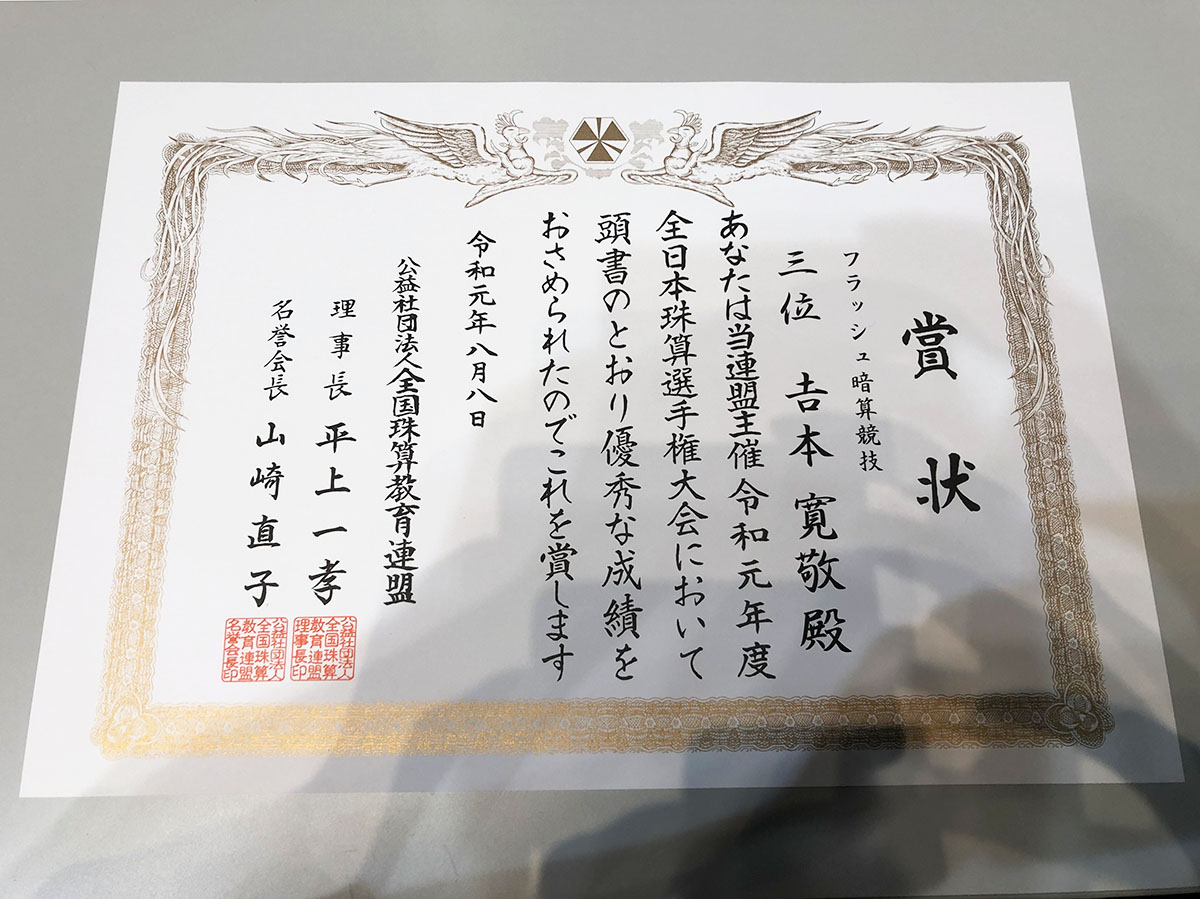 賞状
フラッシュ暗算競技
三位 𠮷本寛敬殿
あなたは当連盟主催令和元年度
全日本珠算選手権大会において
頭書のとおり優秀な成績を
おさめられたのでこれを賞します
令和元年八月八日
公益社団法人全国珠算教育連盟
理事長 平上一孝
公益社団法人
全国珠算
教育連盟
理事長印
名誉会長 山崎直子
公益社団法人
全国珠算
教育連盟
名誉会長印